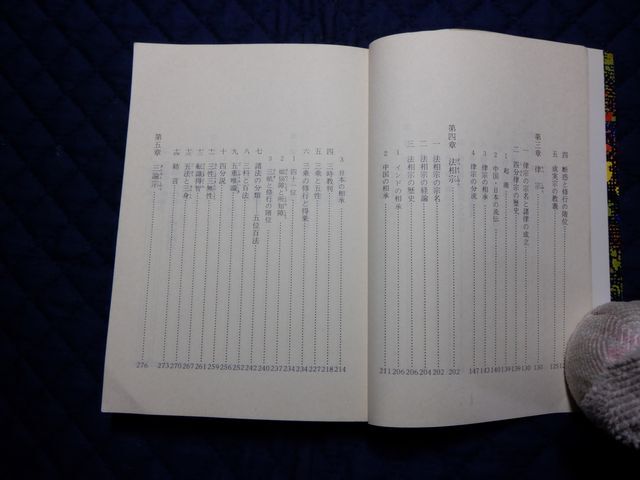 四 断惑と修行の階位 125
五 成実宗の教義
第三章 律宗 130
一 律宗の宗名と諸律の成立 130
二 四分律宗の歴史 139
1 起義 139
2 中国・日本の流伝 140
3 律宗の相承 143
4 律宗の分派 147
第四章 法相宗 202
一 法相宗の宗名 202
二 法相宗の経論 204
三 法相宗の歴史 206
1 インドの相承 206
2 中国の相承 211
3 日本の相承 214
四 三時教判 218
五 三乗と五性 227
六 三乗の修行と得果 234
1 四位 234
2 煩悩障と所知障 237
3 三祇と修行の階位 240
七 諸法の分類――五位百法 242
八 三科と百法 252
九 五重唯識 256
十 四分説 259
十一 三性三無性 261
十二 転識得智 267
十三 五法と三身 270
十四 結言 273
第五章 三論宗 276